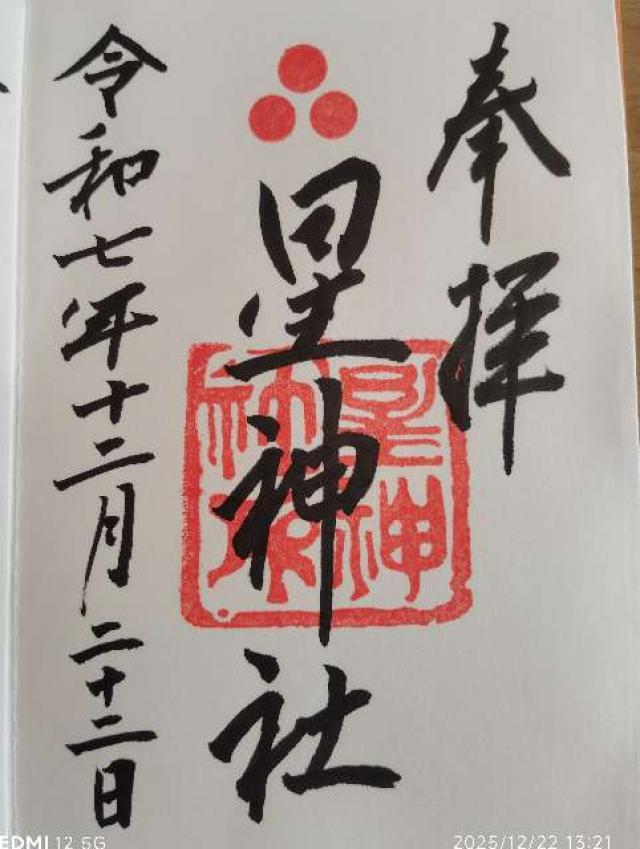 奉拝
星神社
令和七年十二月二十二日
EDMI 12 5G
2025/12/22 13:21